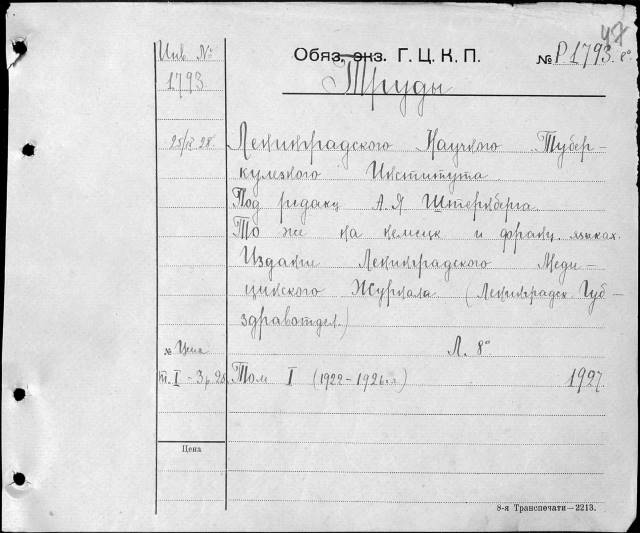 47
Инв. №
1793
Обяз. экз. Г. Ц. К. П.
№ Р1793. 8°
Труды
25/IV 28.
Ленинградского Научного Тубер-
кулезного Института
Под редакц А. Я Штернберга.
То же на немецк и франц. языках.
Издание Ленинградского Меди-
цинского Журнала (Ленинградск Губ-
здравотдел.)
Л. 8°
№ Цена
т. I - 3 р. 25
Том I (1922-1926 г.)
1927.
Цена
8-я Транспечати—2213.